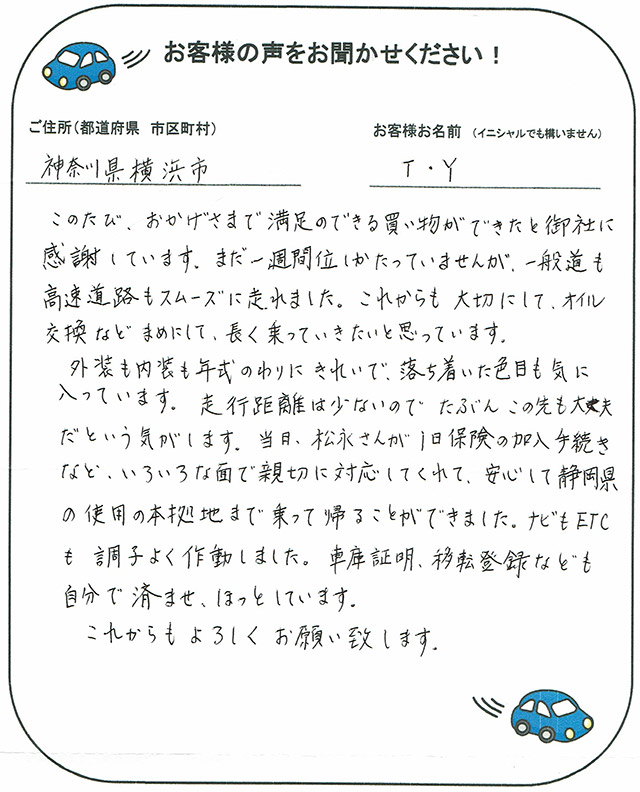 お客様の声をお聞かせください！
ご住所（都道府県　市区町村）
お客様お名前　（イニシャルでも構いません）
神奈川県横浜市
T・Y
このたび、おかげさまで満足のできる買い物ができたと御社に
感謝しています。まだ一週間位しかたっていませんが、一般道も
高速道路もスムーズに走れました。これからも大切にして、オイル
交換などまめにして、長く乗っていきたいと思っています。
外装も内装も年式のわりにきれいで、落ち着いた色目も気に
入っています。走行距離は少ないのでたぶんこの先も大丈夫
だという気がします。当日、松永さんが1日保険の加入手続き
など、いろいろな面で親切に対応してくれて、安心して静岡県
の使用の本拠地まで乗って帰ることができました。ナビもETC
も調子よく作動しました。車庫証明、移転登録なども
自分で済ませ、ほっとしています。
これからもよろしくお願い致します。